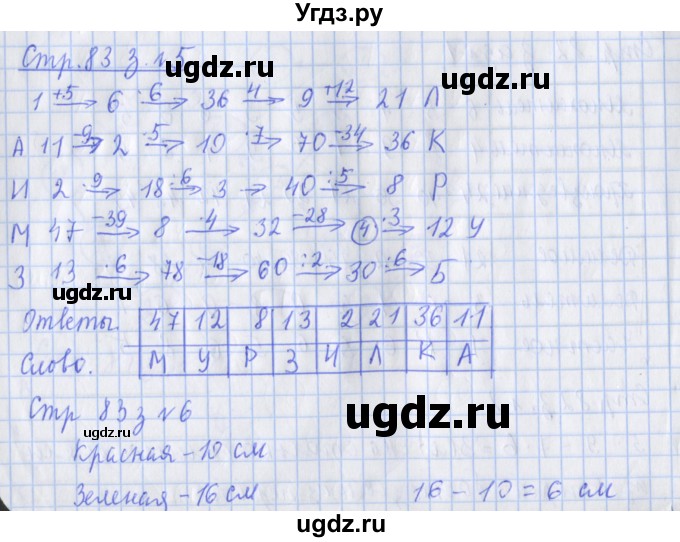 Угдз.ру
Стр. 83 з. №5
1 +5→ 6 ·6→ 36 :4→ 9 +12→ 21 Л
А 11 -9→ 2 ·5→ 10 ·7→ 70 -34→ 36 К
И 2 ·9→ 18 :6→ 3 → 40 :5→ 8 Р
М 47 -39→ 8 ·4→ 32 -28→ 4 ·3→ 12 У
З 13 ·6→ 78 -18→ 60 :2→ 30 :6→ Б
ugdz.ru
ugdz.ru
ugdz.ru
Ответы. 47 12 8 13 2 21 36 11
Слово. М У Р З И Л К А
Стр 83 з №6
ugdz.ru
ugdz.ru
Красная - 10 см
Зеленая - 16 см 16 - 10 = 6 см
ugdz.ru